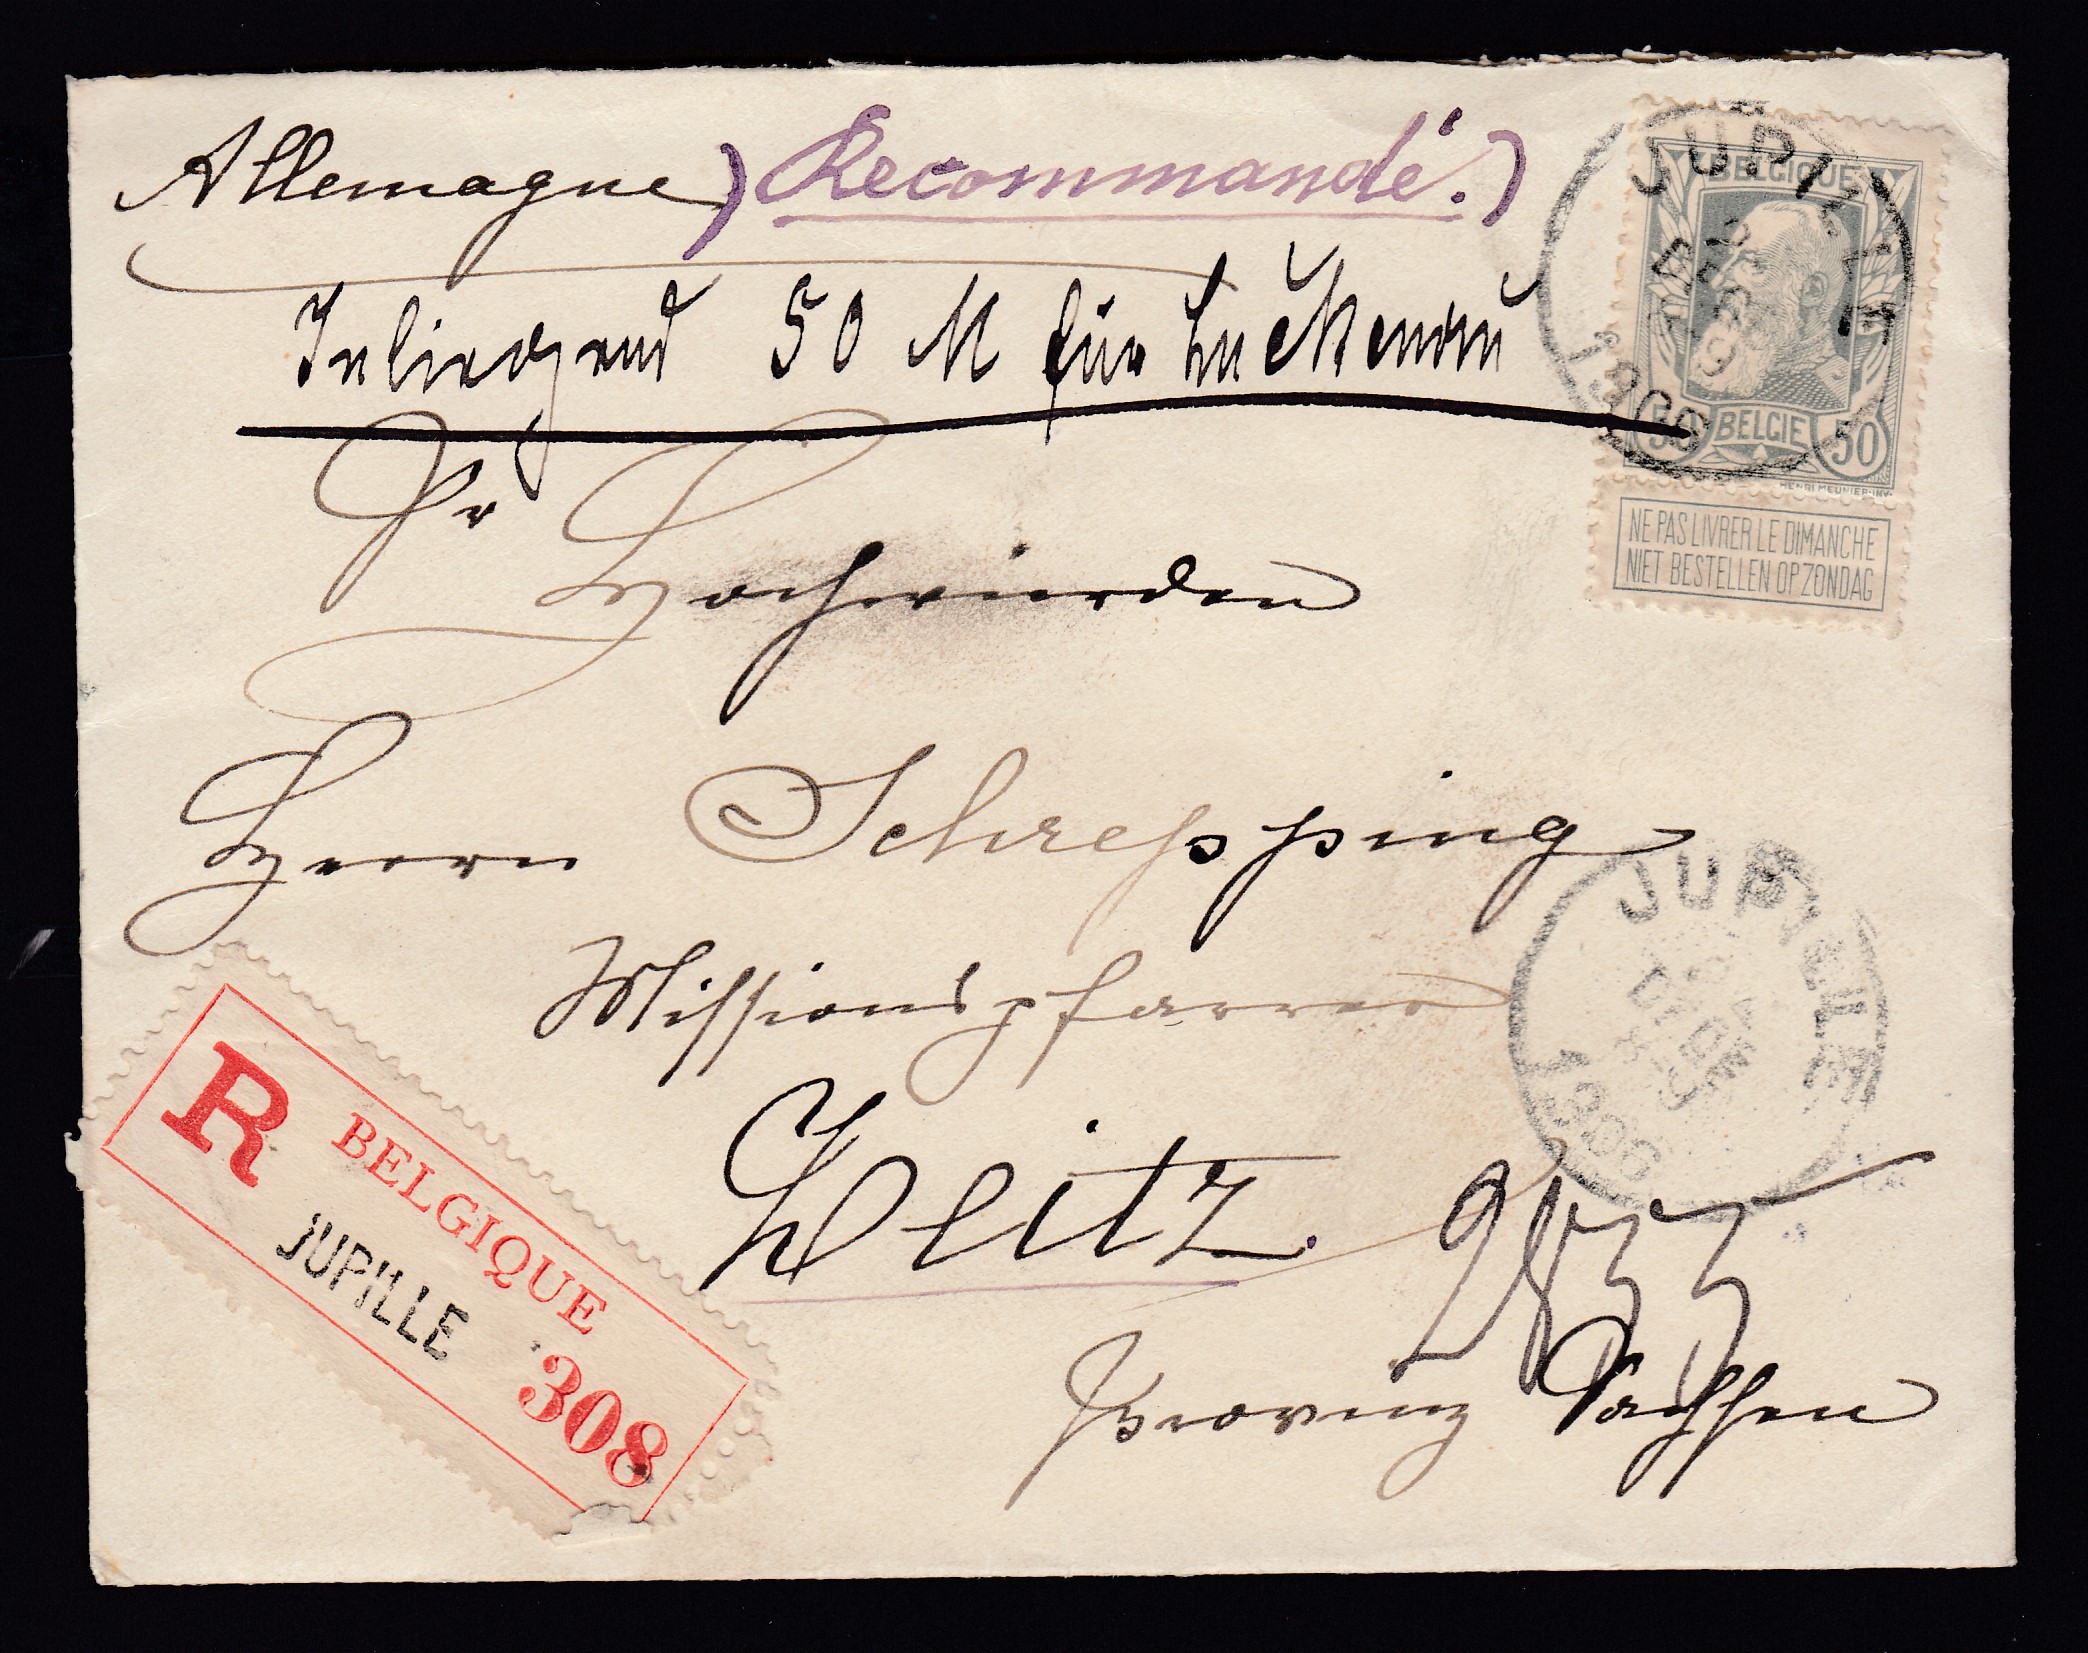 Allemagne) Recommandé.)
Inliegend 50 M für Luckenau
Sr Hochwürden
Herrn Schrepping
Missionspfarrer
Zeitz.
Provinz Sachsen
JUPILLE
1906
BELGIQUE
50 BELGIE 50
HENRI MEUNIER·INV.
NE PAS LIVRER LE DIMANCHE
NIET BESTELLEN OP ZONDAG
JUPILLE
1906
R BELGIQUE
JUPILLE
308